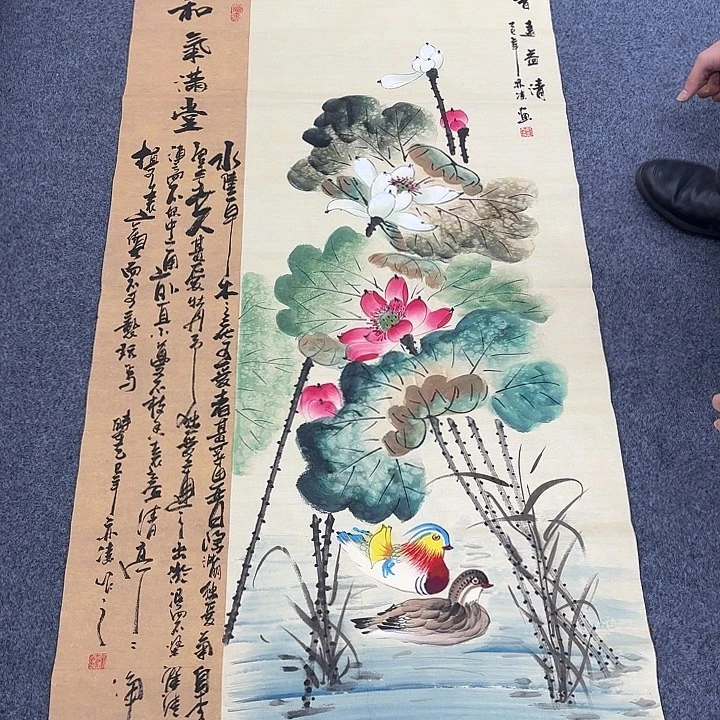 香遠益清
和氣滿堂
水陸草木之花可愛者甚蕃晋日淵明獨愛菊自李
唐来世人甚愛牡丹予獨愛蓮之出淤泥而不染濯清
漣而不妖中通外直不蔓不枝香遠益清亭
可遠觀而不可褻玩焉 時乙巳年亦凌作